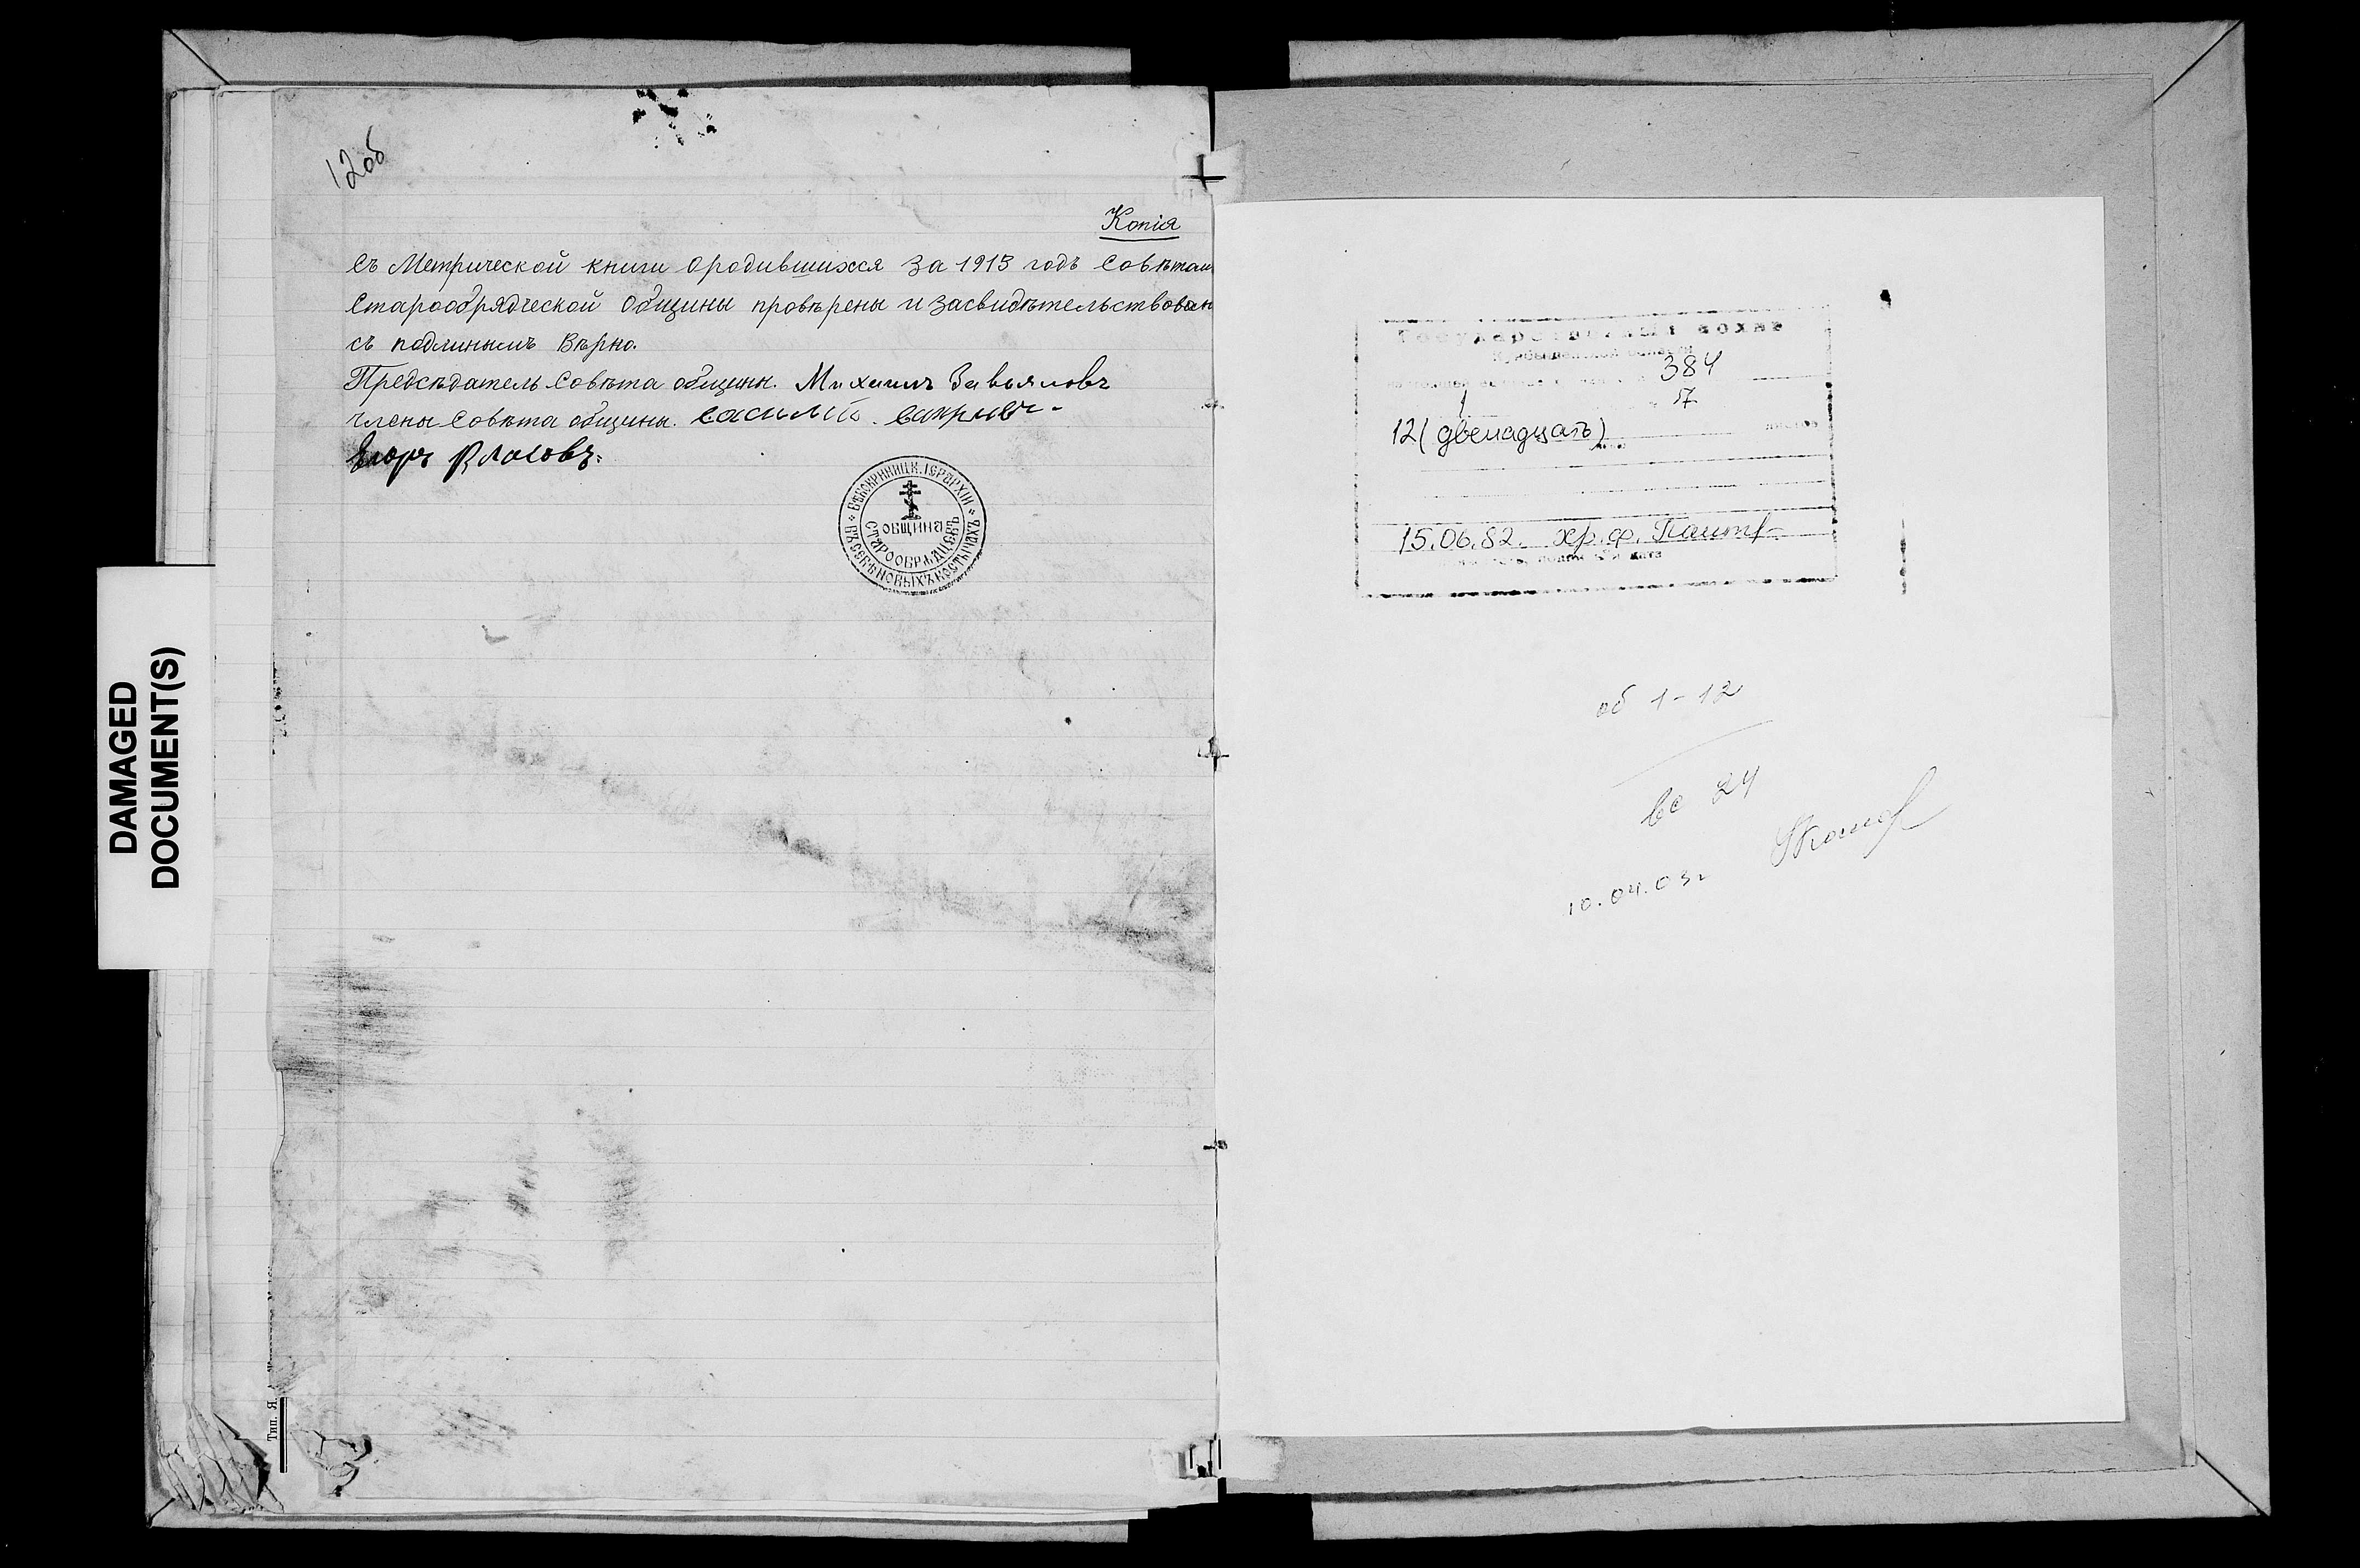 12об
Копія
Съ Метрической книги Ородившихся за 1913 годъ Совѣтом
Старообрядческой Общины провѣрены и засвидѣтельствован
съ подлинымъ Вѣрно.
Предсѣдатель Совѣта общины. Михаилъ Завьяловъ
члены Совѣта общины.
Егоръ Власовъ.
БѢЛОКРИНИЦК. ІЕРАРХІИ
ОБЩИНА
СТАРООБРЯДЦЕВЪ
ВЪ СЕЛѢ НОВЫХЪ КОСТЫЧАХЪ
DAMAGED
DOCUMENT(S)
Тип. Я.
Государственный архив
Куйбышевской области
384
1 7
12 (двенадцать)
листов
15.06.82. хр. ф.
подпись и дата
об 1-12
вс 24
10.04.03г